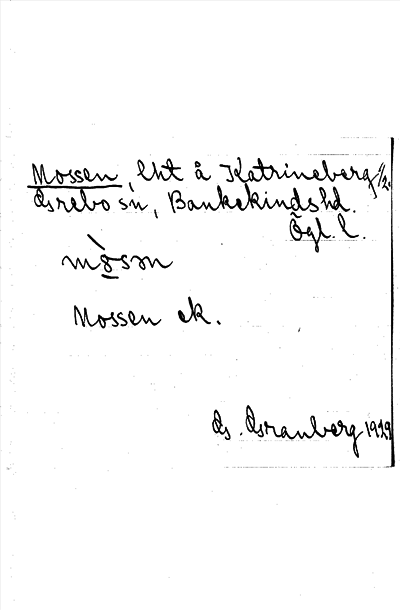 Mossen, lht å Katrineberg 1/2.
Grebo sn, Bankekinds hd.
Ögl. l.
mòsən
Mossen ek.
G. Granberg 1929